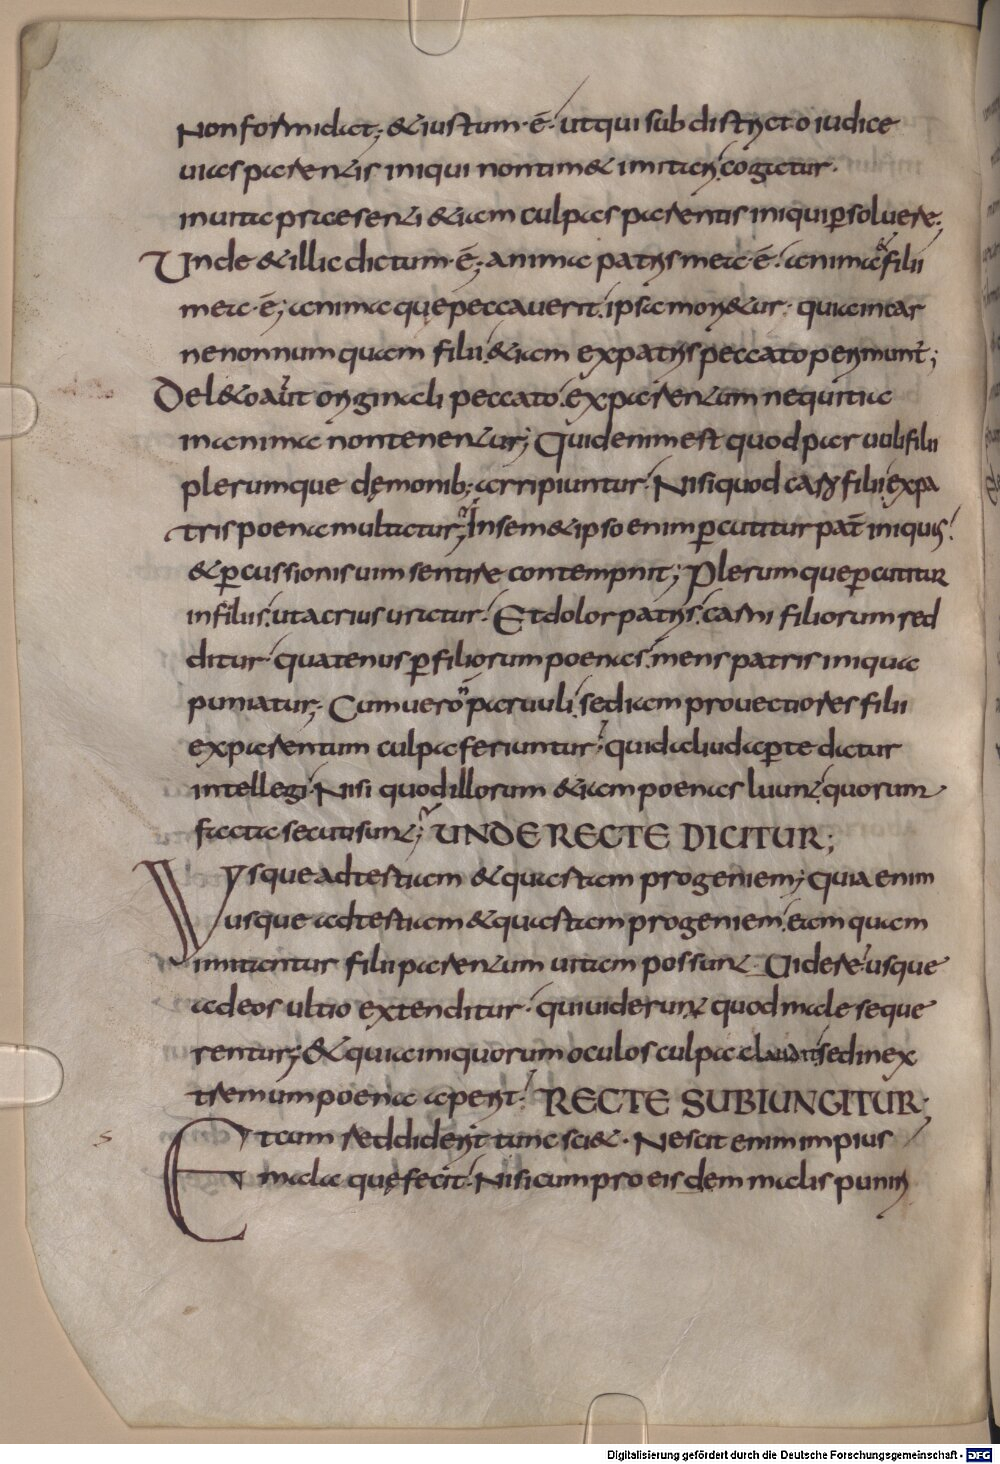 Non formidat; & iustum·ē· ut qui sub districto iudice
uias parentis iniqui non tim& imitari, cogatur·
in uita praesenti &iam culpas parentis iniqui ꝑsoluere;
Unde & illic dictum·ē; anima patris mea·ē· anima & filii
mea·ē; anima quę peccauerit, ipsa mori&ur; quia in car
ne nonnumquam filii, &iam ex patris peccato perimunt̄;
Del&o aut̄ originali peccato, ex parentum nequitia
in anima non tenentur; Quid enim est quod paruuli filii
plerumque dęmonib; arripiuntur· Nisi quod caro filii, ex pa
tris poena multatur; In sem&ipso enim ꝑcutitur pat̄ iniquus,
& ꝑcussionis uim sentire contempnit; Plerumque ꝑcutitur
in filiis, ut acrius uratur· Et dolor patris, carni filiorum red
ditur· quatenus ꝑ filiorum poenas, mens patris iniqua
puniatur; Cum uero n̄ paruuli, sed iam prouectiores filii
ex parentum culpa feriuntur· quid aliud aꝑte datur
intellegi· Nisi quod illorum &iam poenas luunt, quorum
facta secuti sunt; UNDE RECTE DICITUR;
Usque ad tertiam & quartam progeniem; Quia enim
usque ad tertiam & quartam progeniem, eam quam
imitantur filii parentum uitam possunt· Uidere· usque
ad eos ultio extenditur· qui uiderunt quod male seque
rentur; & quia iniquorum oculos culpa claudit, sed in ex
tremum poena aperit· RECTE SUBIUNGITUR;
Et cum reddiderit tunc sci&· Nescit enim impius
mala quę fecit· Nisi cum pro eisdem malis puniri
Digitalisierung gefördert durch die Deutsche Forschungsgemeinschaft - DFG